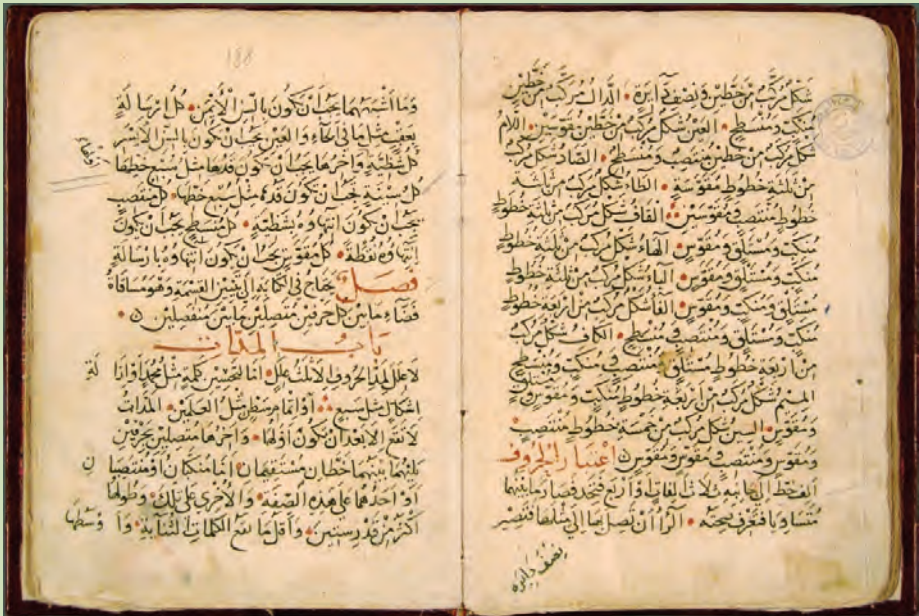 شكل مركب من خطين ونصف دايرة • الدال مركب من خطين
منكب ومنسطح • العين شكل مركب من خطين مقوسين • اللام
شكل مركب من خطين منتصب ومنسطح • الصاد شكل مركب
من ثلثة خطوط مقوسة • الطاء شكل مركب من ثلثة
خطوط منتصب ومقوسين • القاف شكل مركب من ثلثة خطوط
منكب ومستلق ومقوس • الهاء شكل مركب من ثلثة خطوط
منكب ومستلق ومقوس • الياء شكل مركب من ثلثة خطوط
مستلق ومنكب ومقوس • الفا شكل مركب من اربعة خطوط
منكب ومستلق ومنتصب ومنسطح • الكاف شكل مركب
من اربعة خطوط مستلق ومنتصب ومنكب ومنسطح
الميم شكل مركب من اربعة خطوط منكب ومستلق ومقوس
ومقوس • السين شكل مركب من خمسة خطوط منتصب
ومقوس ومنتصب ومقوس ومقوس اعتبار الحروف
الف خط الى جانبه ثلاث الفات او اربع فتجد فضا ما بينهما
متساويا فتعرف صحته • الرا ان تصل بها الى مثلها فتصير
نصف دايره
188
وما اشبههما يجب ان تكون بالسن الايمن • كل ارسالة
مثل ما في الحاء والعين يجب ان تكون بالسن الايسر
كل شظية واخرها يجب ان تكون قدها مثل سبع خطها
كل سنبة يجب ان تكون قده مثل سبع خطها • كل منتصب
يجب ان يكون انتهاوه بشظية • كل منسطح يجب ان يكون
انتهاوه نقطة • كل مقوس يجب ان يكون انتهاوه بارسالة
فصل يحتاج في الكتابة الى تبيين القسمة وهو مسافاة
فضاء ما بين كل حرفين متصلين ما بين منفصلين
باب المدات
لا علل لمد الحروف الا لثلث علل • اما لتحسين كلمة مثل محمد او ازالة
اشكال مثل سبع • او اتمام سطر مثل العلمين • المدات
لا تقع الا بعد ان تكون اولها • واخرها متصلين بحرفين
بينهما خطان مستقيمان • اما منكبان او منتصبان
او احدهما على هذه الصفة • والاخرى على تلك • وطولها
اكثر من قدر سنين • واقل ما الكلمات الثنايية واوسطها